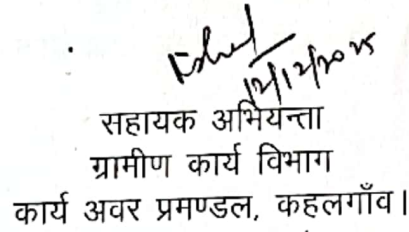 12/12/2025
सहायक अभियन्ता
ग्रामीण कार्य विभाग
कार्य अवर प्रमण्डल, कहलगाँव।